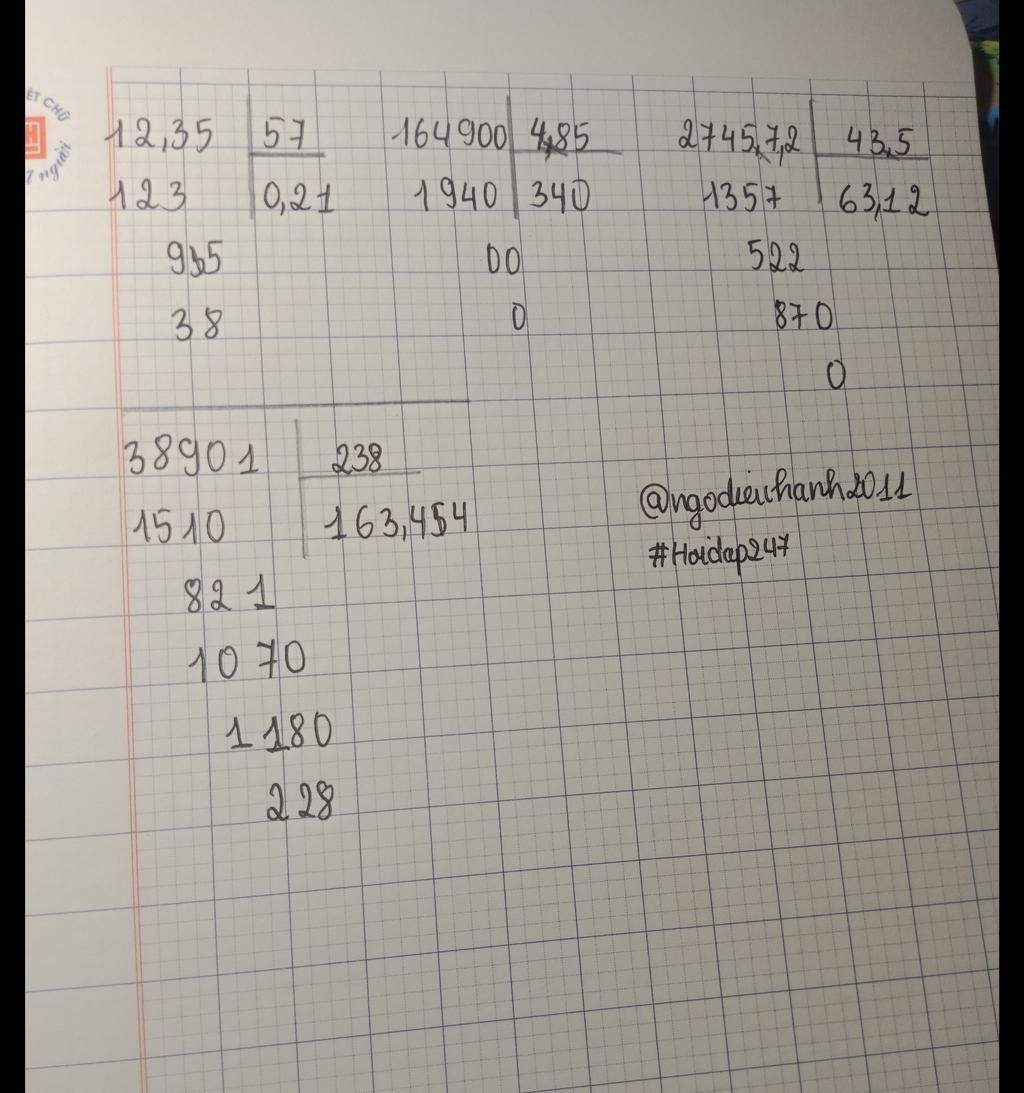 ẾT CHỮ
H
người
12,35 57 164900 4,85 2745,7,2 43,5
123 0,21 1940 340 1357 63,12
95 00 522
38 0 870
0
38901 238
1510 163,454
821
1070
1180
228
@ngodieuhanh2011
#Hoidap247